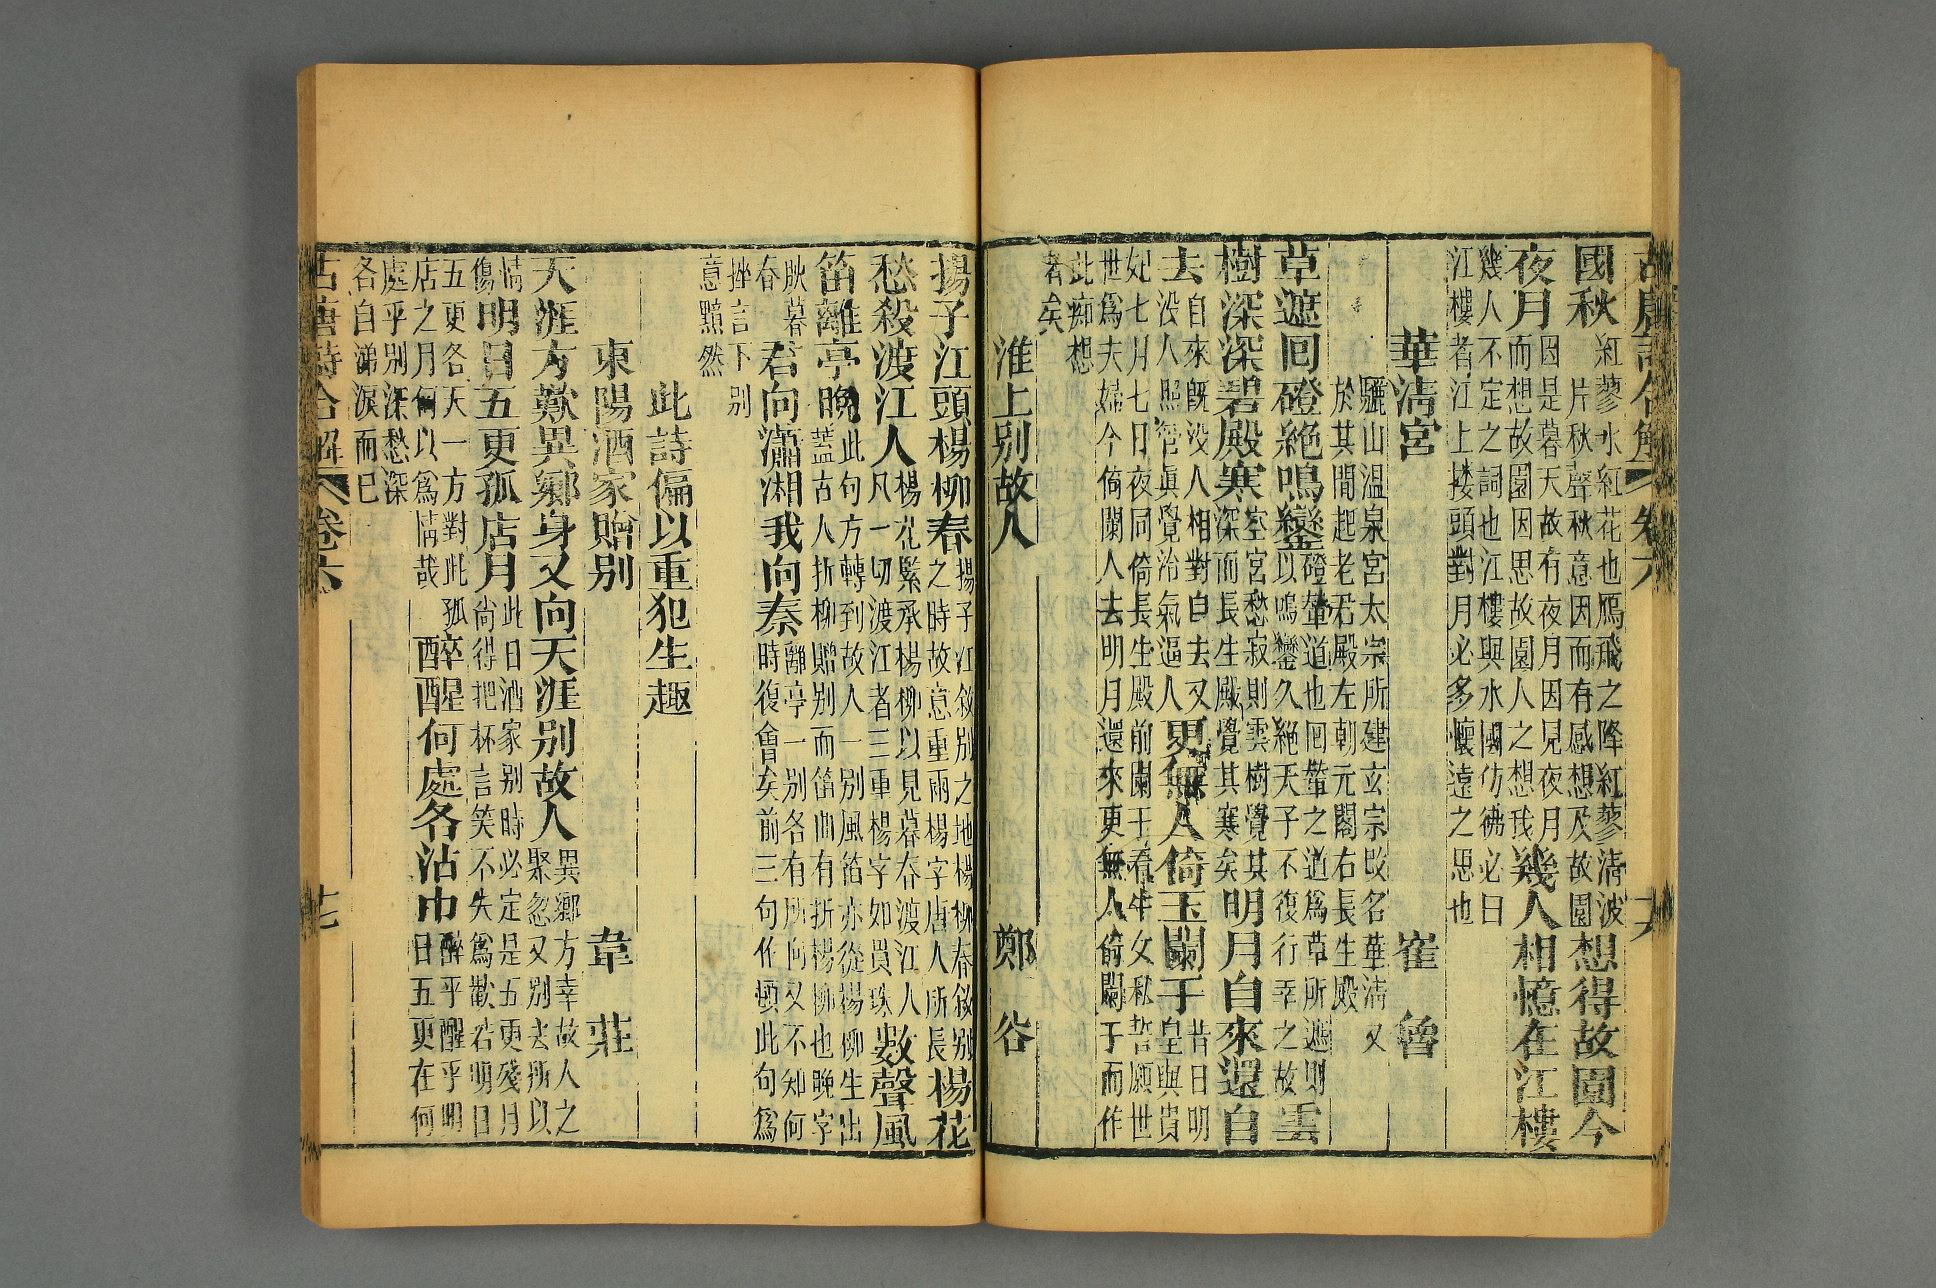 古唐詩合解 卷六
國秋
紅蓼水紅花也鴈飛之降紅蓼清波
片秋聲秋意因而有感想及故園
想得故園今
夜月
因是暮天故有夜月因見夜月
而想故園因思故園人之想我
幾人相憶在江樓
幾人不定之詞也江樓與水國彷彿必曰
江樓者江上摟頭對月必多懷遠之思也
華清宮 崔魯
驪山温泉宮太宗所建玄宗改名華清又
於其間起老君殿左朝元閣右長生殿
草遮回磴絶鳴鑾
磴輦道也回輦之道爲草所遮則
以鳴鑾久絶天子不復行幸之故
雲
樹深深碧殿寒
空宮愁寂則雲樹覺其
深而長生殿覺其寒矣
明月自來還自
去
自來旣没人相對自去又
没人照管眞覺冷氣逼人
更無人倚玉闌干
昔日明
皇與貴
妃七月七日夜同倚長生殿前闌干看牛女私誓願世
世爲夫婦今倚闌人去明月還來更無人倚闌干而作
此痴想
者矣
淮上别故人 鄭谷
揚子江頭楊柳春
揚子江敘别之地楊柳春敘别
之時故意重兩楊字唐人所長
楊花
愁殺渡江人
楊花緊承楊柳以見暮春渡江人
凡一切渡江者三重楊字如貫珠
數聲風
笛離亭晚
此句方轉到故人一别風笛亦從楊柳生出
蓋古人折柳贈别而笛曲有折楊柳也晚字
脉暮
春
君向瀟湘我向秦
離亭一别各有所向又不知何
時復會矣前三句作頓此句爲
挫言下别
意黯然
此詩偏以重犯生趣
東陽酒家贈别 韋莊
天涯方歎異鄉身又向天涯别故人
異鄉方幸故人之
聚忽又别去所以
情
傷
明日五更孤店月
此日酒家别時必定是五更殘月
尚得把杯言笑不失爲歡若明日
五更各天一方對此孤
店之月何以爲情哉
醉醒何處各沾巾
醉乎醒乎明
日五更在何
處乎别深愁深
各自涕淚而已
古唐詩合解 卷六